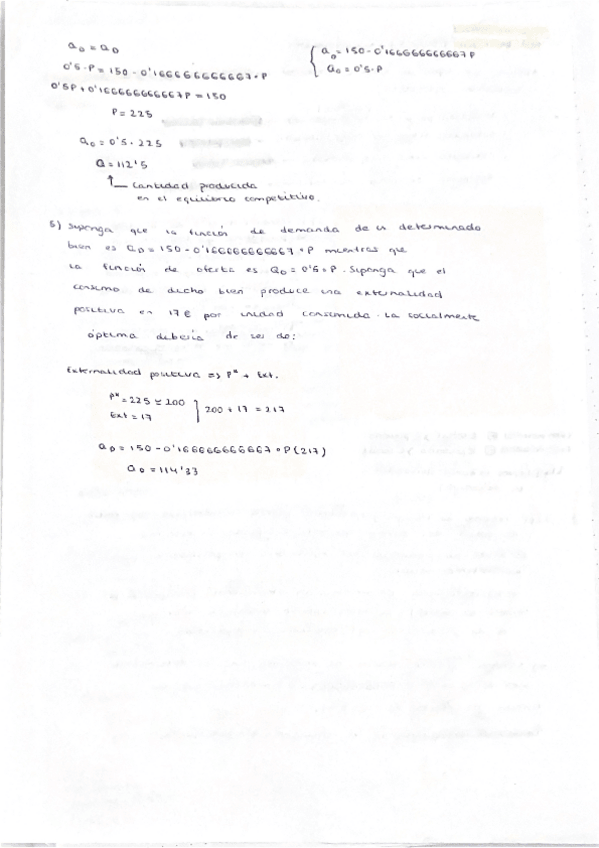 Q₀ = Q₀
0'5·P = 150 - 0'166666666667·P
0'5P + 0'166666666667P = 150
P = 225
{ Q₀ = 150 - 0'166666666667P
Q₀ = 0'5·P
Q₀ = 0'5·225
Q = 112'5
↑ Cantidad producida
en el equilibrio competitivo.
5) Suponga que la función de demanda de un determinado
bien es Q₀ = 150 - 0'166666666667·P mientras que
la función de oferta es Q₀ = 0'5·P. Suponga que el
consumo de dicho bien produce una externalidad
positiva en 17€ por unidad consumida. La socialmente
óptima debería de ser de:
Externalidad positiva => P* + Ext.
P* = 225 ≃ 200
Ext = 17
} 200 + 17 = 217
Q₀ = 150 - 0'166666666667·P(217)
Q₀ = 114'33